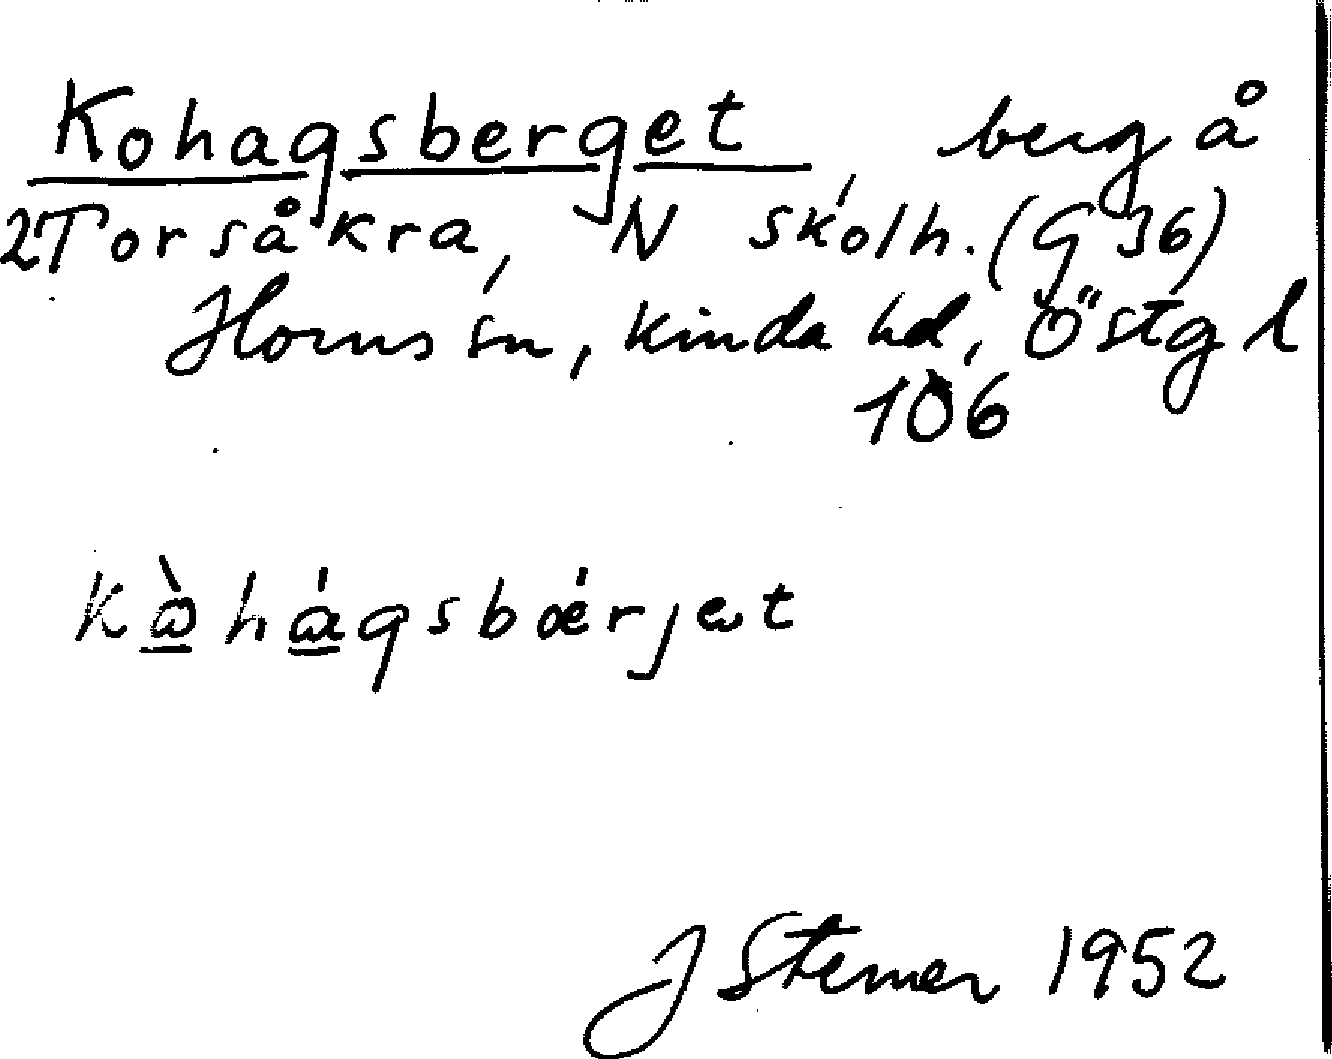 Kohagsberget, berg å
2Torsåkra, N skolh. (G 36)
Horns sn, Kinda hd, Östgl
106
kòhágsbǽrjət
J Sterner 1952